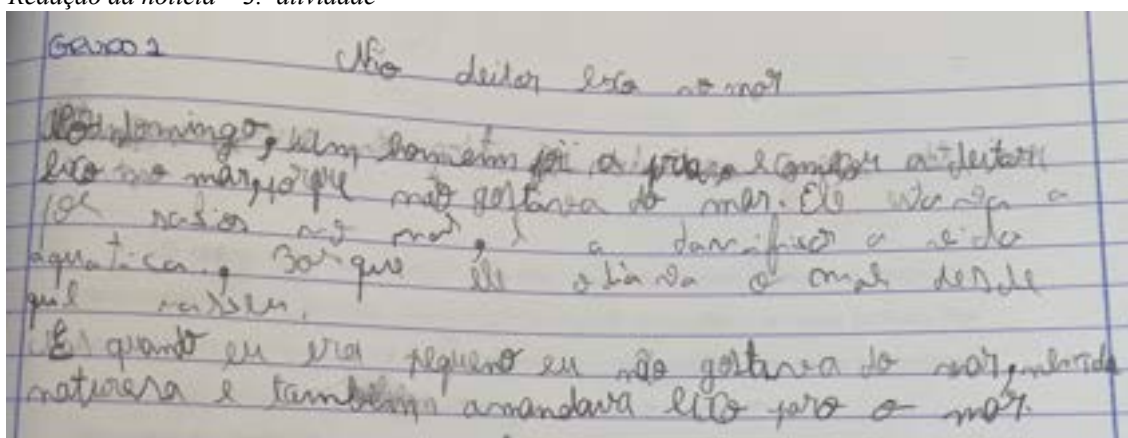 Redação da notícia – 3.ª atividade
Grupo 2
Não deitar lixo no mar
domingo, um homem foi à praia e começou a deitar
lixo no mar, porque não gostava do mar. Ele estava a
no mar, a danificar a vida
aquática, porque ele odiava o mar desde
que nasseu.
E quando eu era pequeno eu não gostava do mar, nem da
naturesa e também amandava lixo para o mar.